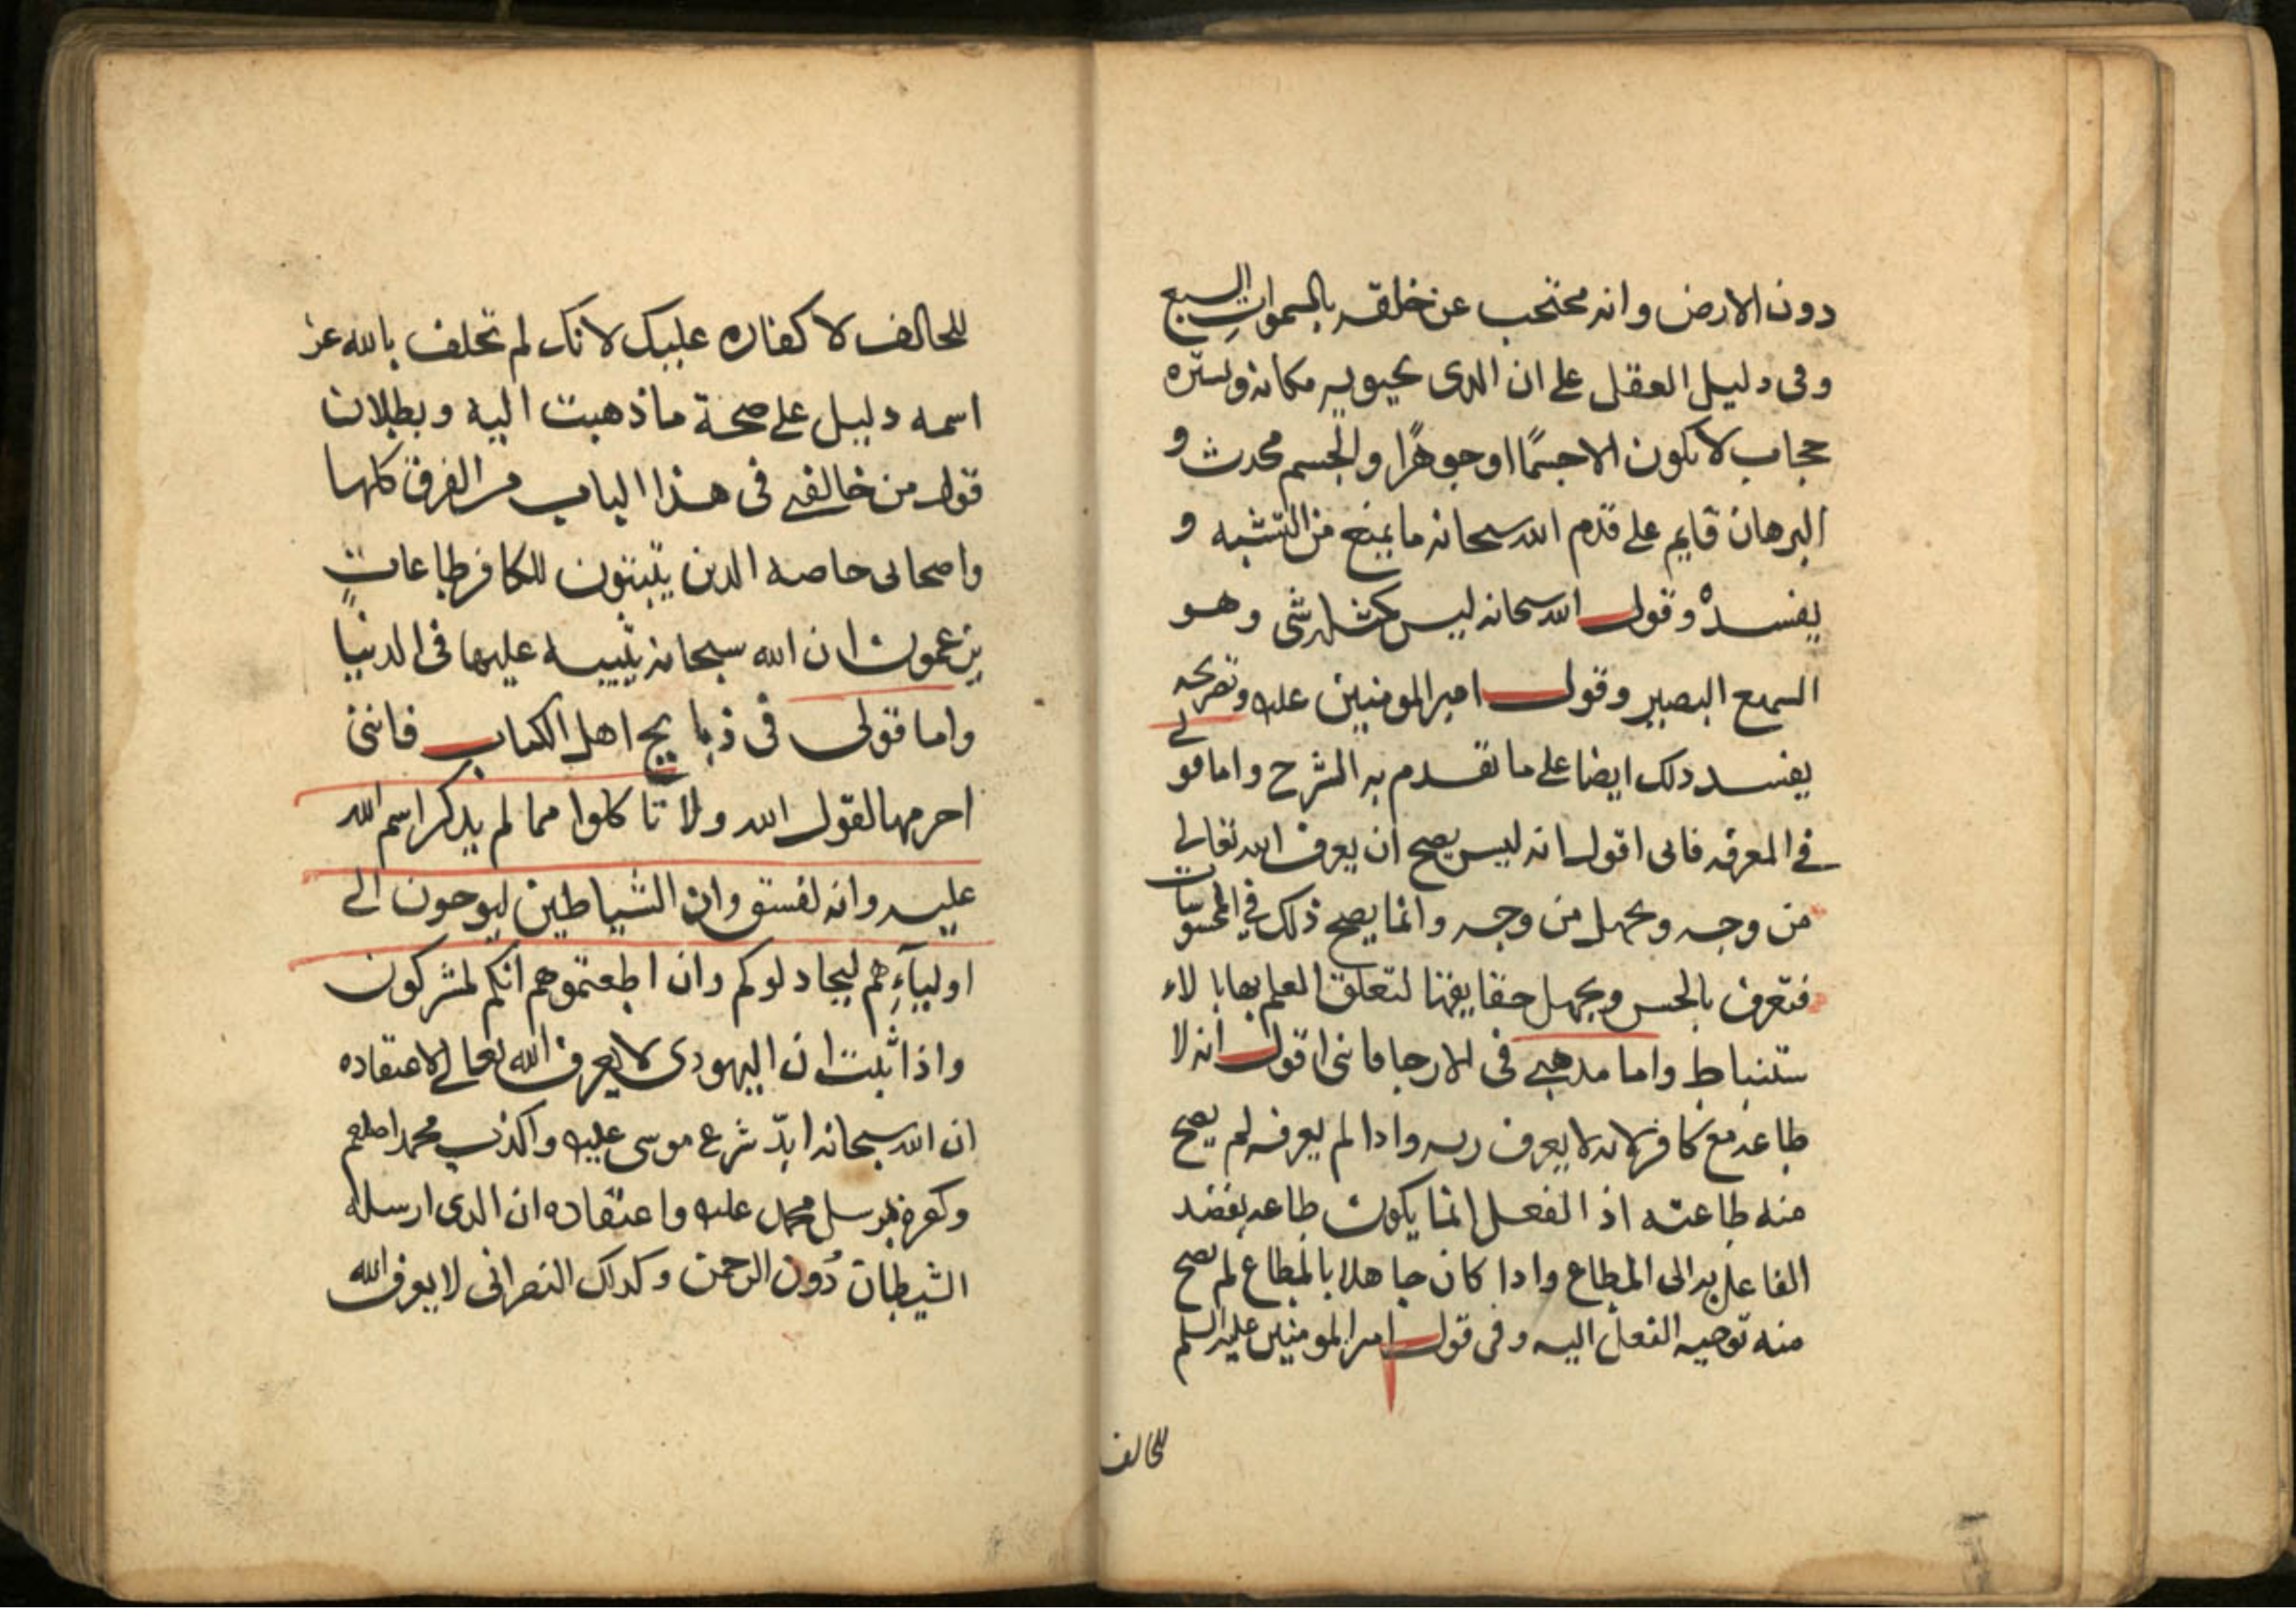 دون الارض وانه محتجب عن خلقه بالسموات السبع
وفى دليل العقل على ان الدى يحويه مكان ويستره
حجاب لا يكون الا جسمًا او جوهرًا والجسم محدث و
البرهان قايم على قدم الله سبحانه ما يمنع من التشبه و
يفسده وقول الله سبحانه ليس كمثله شى وهو
السميع البصير وقول امير المومنين عليه وتصريحه
يفسد دلك ايضا على ما تقدم به الشرح واما قولى
فى المعرفه فانى اقول انه ليس يصح ان يعرف الله تعالى
من وجه ويجهل من وجه وانما يصح ذلك فى المحسوسات
فتعرف بالحس ويجهل حقايقها لتعلق العلم بها بالا
ستنباط واما مدهبى فى الارجا فاننى اقول انه لا
طاعه مع كافر لانه لا يعرف ربه وادا لم يعرفه لم يصح
منه طاعته اذ الفعل انما يكون طاعه بقصد
الفاعل به الى المطاع وادا كان جاهلا بالمطاع لم يصح
منه توجيه الفعل اليه وفى قول امير المومنين عليه السلم
للحالف
للحالف لا كفاره عليك لانك لم تحلف بالله عز
اسمه دليل على صحة ما ذهبت اليه وبطلان
قول من خالفنى فى هذا الباب من الفرق كلها
واصحابى خاصه الدين يثبتون للكافر طاعات
يزعمون ان الله سبحانه يثيبه عليها فى الدنيا
واما قولى فى ذبايح اهل الكتاب فاننى
احرمها لقول الله ولا تاكلوا مما لم يدكر اسم الله
عليه وانه لفسق وان الشياطين ليوحون الى
اوليآءِهم ليجادلوكم وان اطعتموهم انكم لمشركون
واذا ثبت ان اليهودى لا يعرف الله تعالى لاعتقاده
ان الله سبحانه ابدّ شرع موسى عليه واكذب محمدا صلعم
وكفره بمرسل محمد عليه واعتقاده ان الدى ارسله
الشيطان دُون الرحمن وكداك النصرانى لا يعرف الله